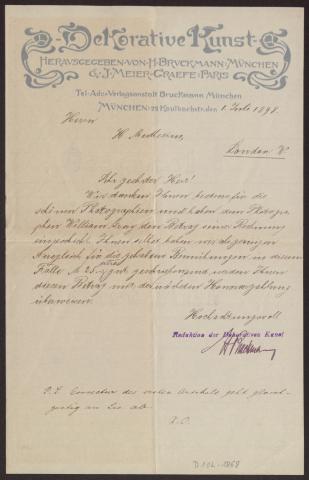 DEKORATIVE KUNST
HERAUSGEGEBEN·VON·H·BRUCKMANN·MÜNCHEN
& J·MEIER-GRAEFE·PARIS
Tel-Adr: Verlagsanstalt Bruckmann München
MÜNCHEN: 22 Kaulbachstr. den 1. Juli 1898.
Herrn
H.
London W
Sehr geehrter Herr!
Wir danken Ihnen bestens für die
schönen Photographien und haben dem Photogra-
phen William Gray den Betrag seiner Rechnung
eingeschickt. Ihnen selbst haben wir als geringen
Ausgleich für die gehabten Bemühungen in diesem
Falle M 25.- gutgeschrieben und werden Ihnen
diesen Betrag mit der nächsten Honorarzahlung
überweisen.
Hochachtungsvoll
Redaktion der Dekorativen Kunst
H Bruckmann
P.S. Correctur des ersten Artikels geht gleich-
zeitig an Sie ab.
D.O.